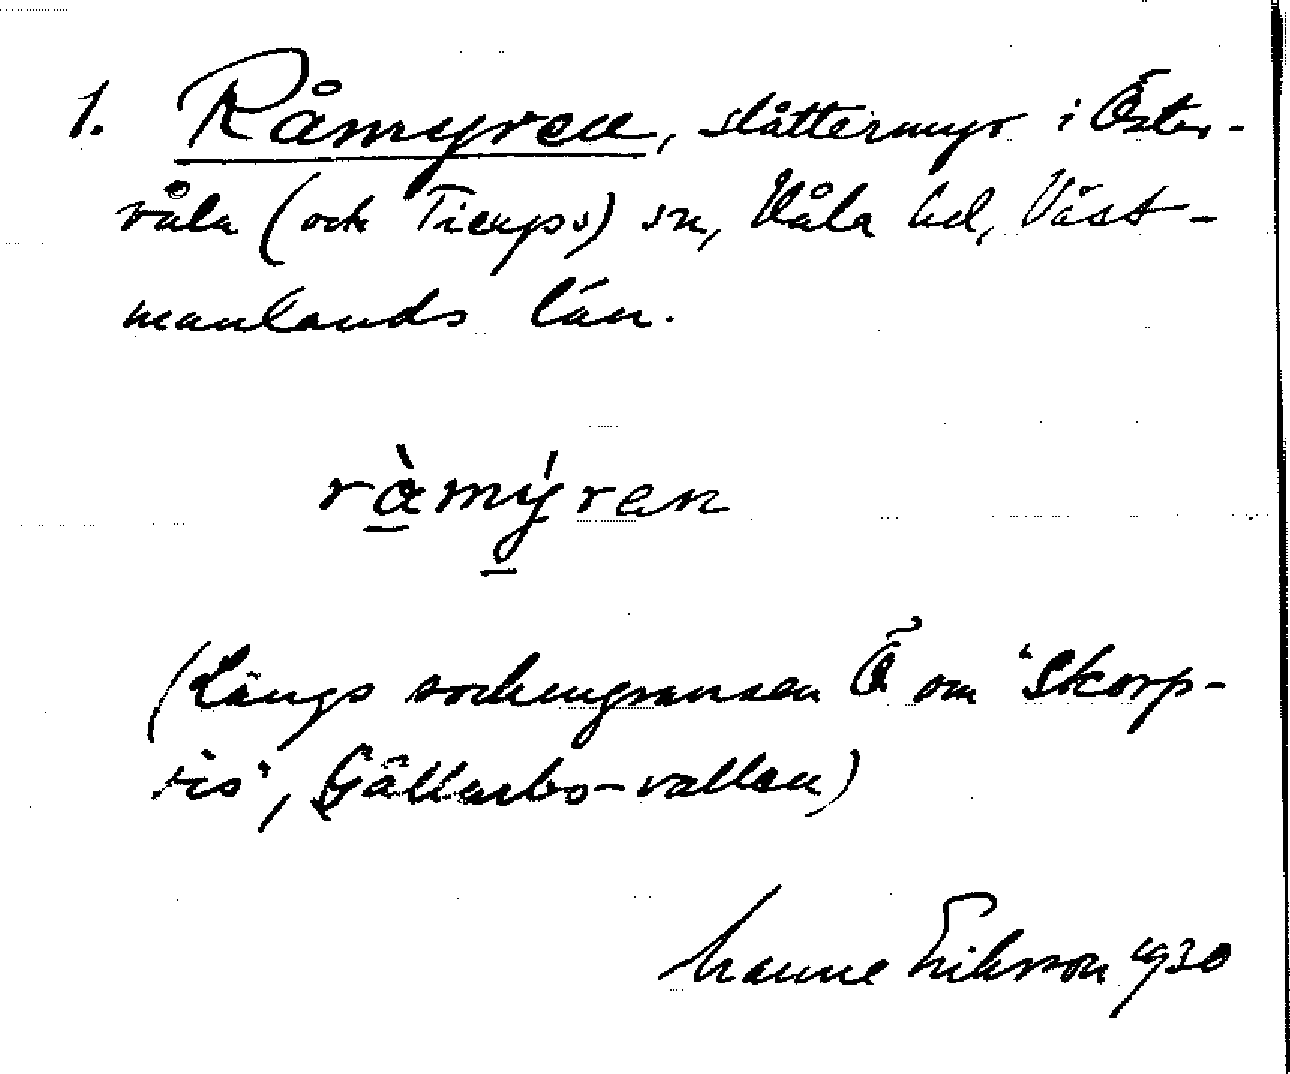 1. Råmyren, slåttermyr i Öster-
våla (och Tierps) sn, Våla hd, Väst-
manlands län.
ràmýren
(Längs sockengränsen Ö om "Skorp-
is", Gällarbo-vallen)
Manne Eriksson 1930